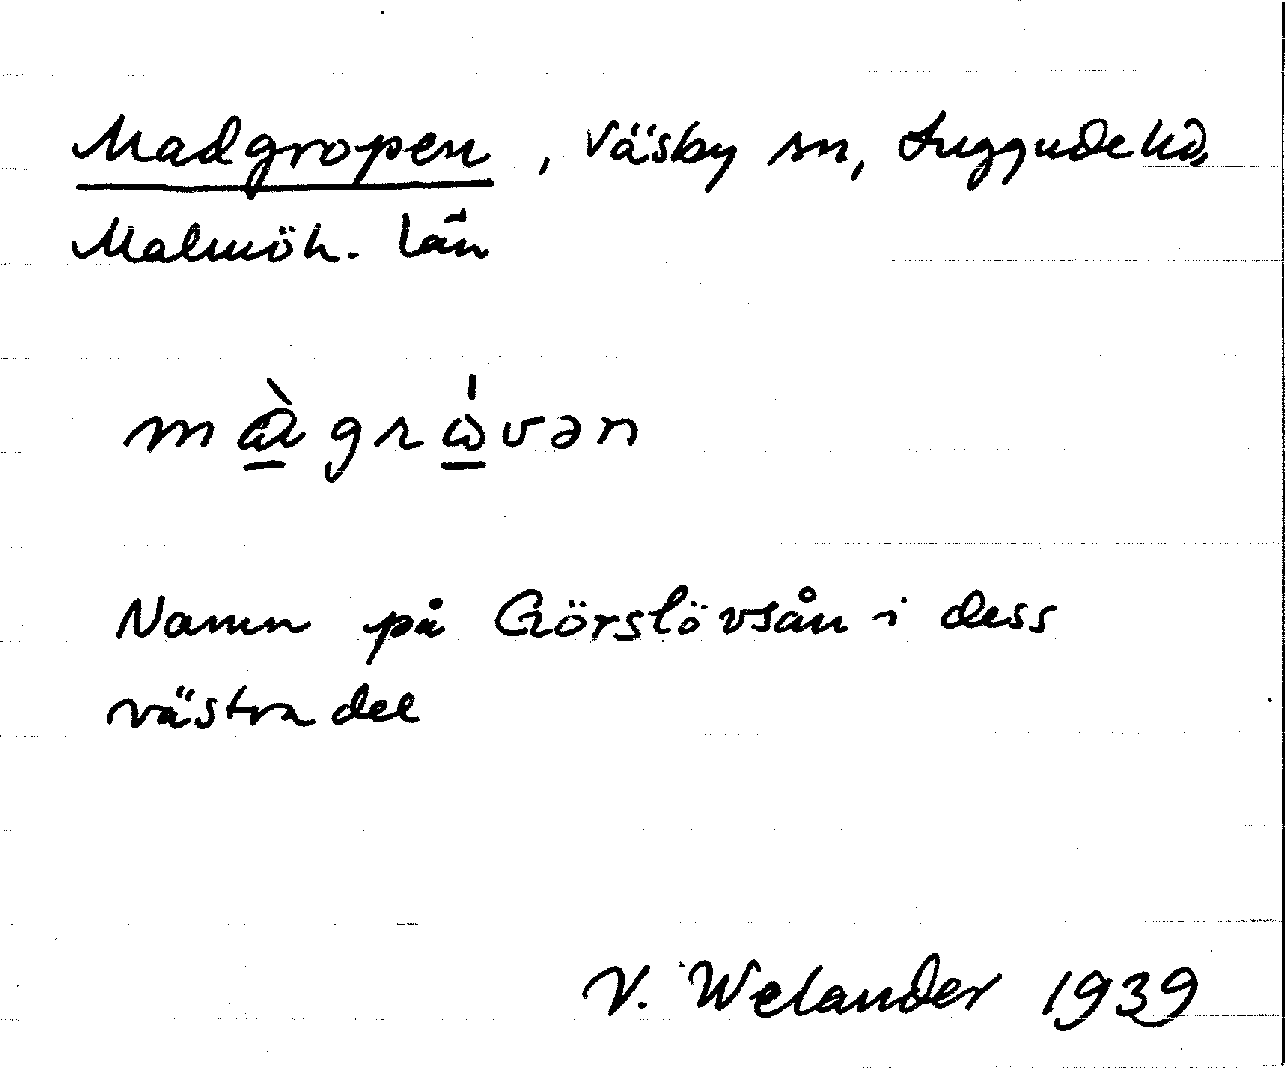 Madgropen, Väsby sn, Luggude hd,
Malmöh. län
mɑ̀grɷ́vən
Namn på Görslövsån i dess
västra del
V. Welander 1939